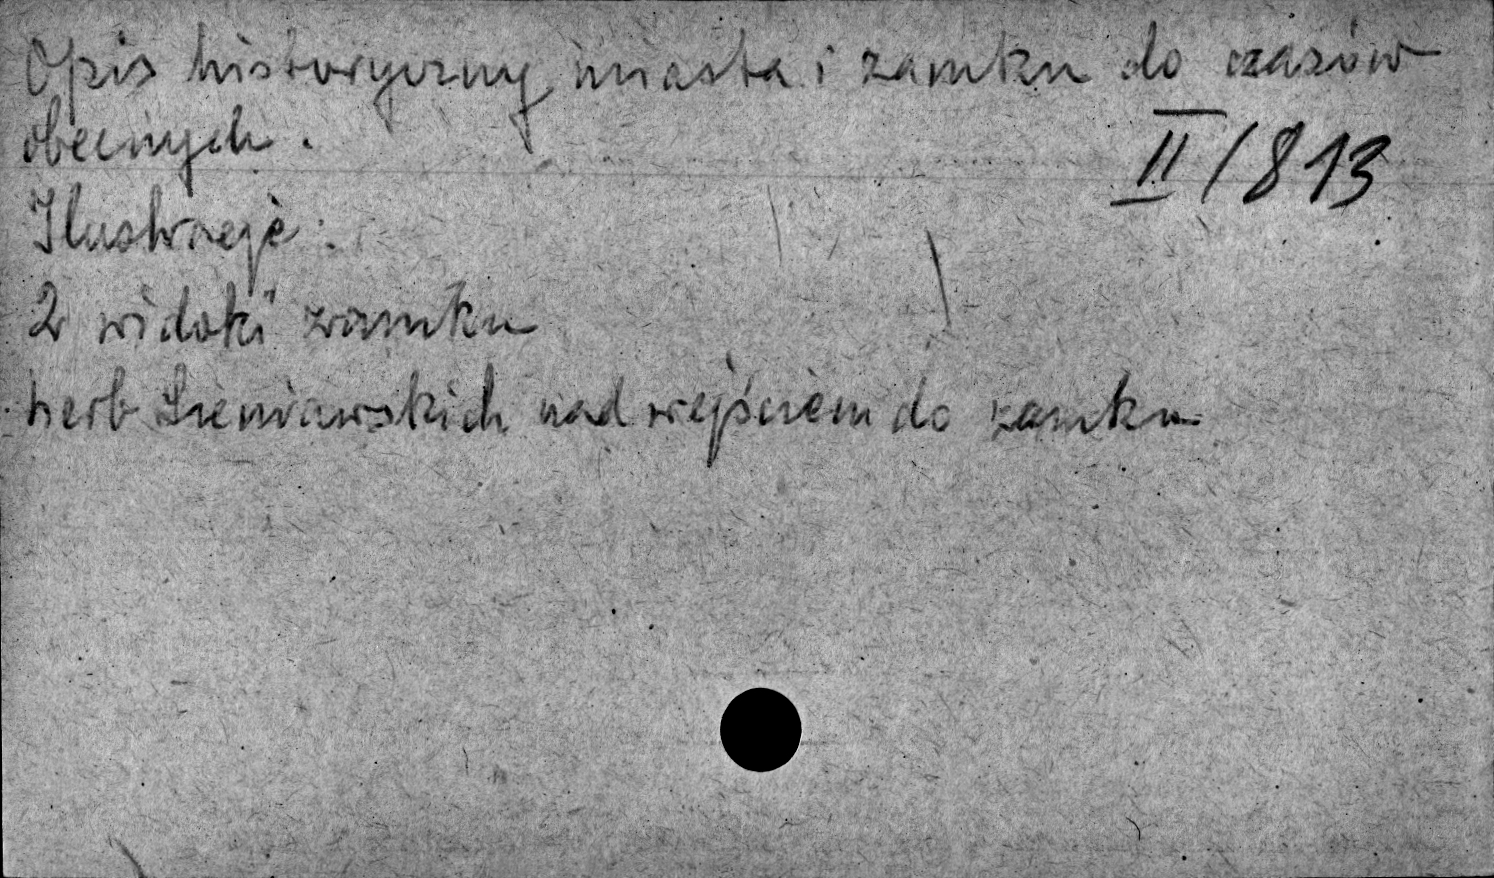 Opis historyczny miasta i zamku do czasów
obecnych.
II/813
Ilustracje:
2 widoki zamku
herb Sieniawskich nad wejściem do zamku